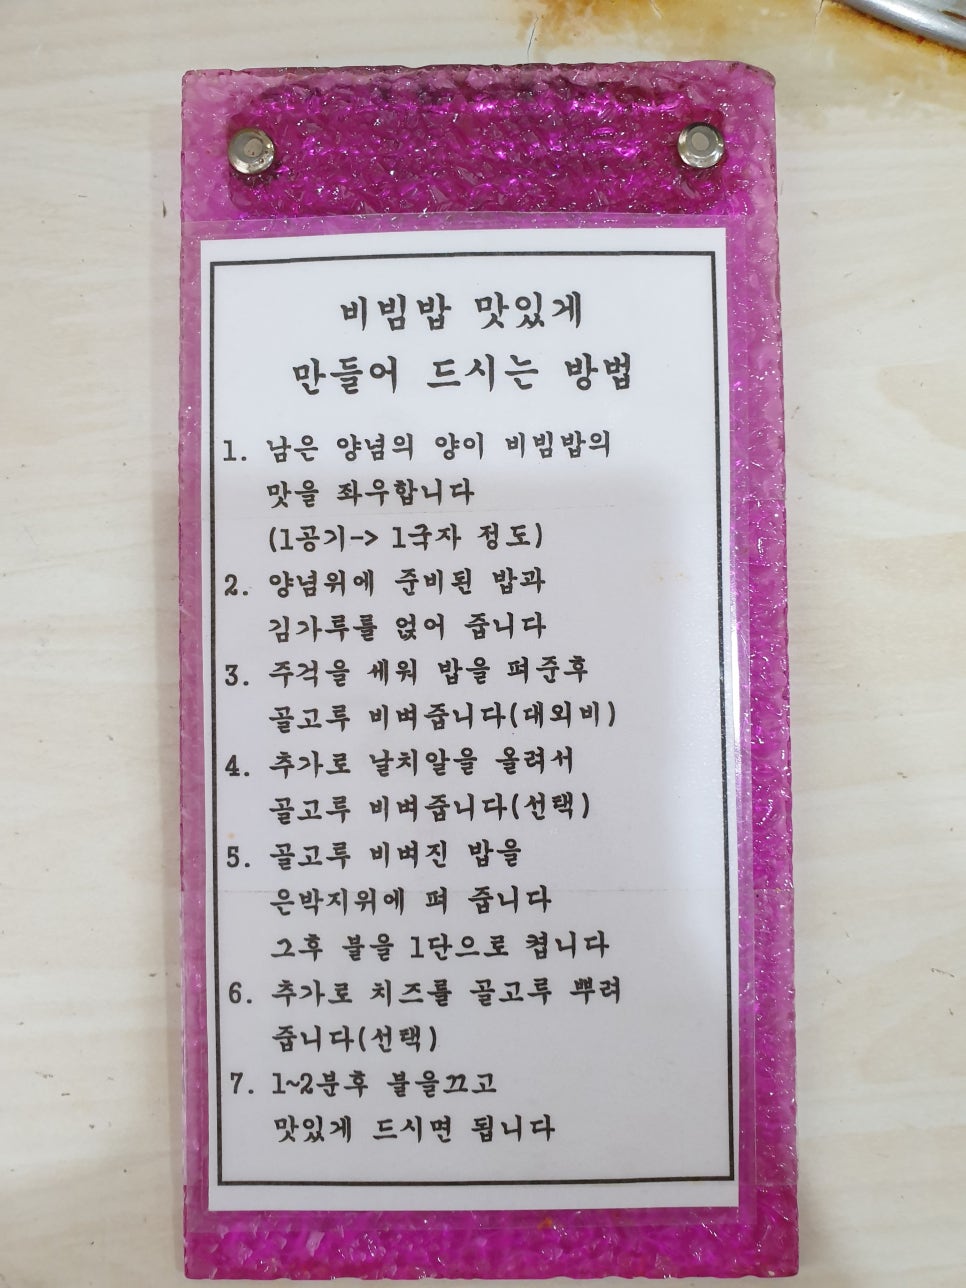 비빔밥 맛있게
만들어 드시는 방법
1. 남은 양념의 양이 비빔밥의
맛을 좌우합니다
(1공기-> 1국자 정도)
2. 양념위에 준비된 밥과
김가루를 얹어 줍니다
3. 주걱을 세워 밥을 펴준후
골고루 비벼줍니다(대외비)
4. 추가로 날치알을 올려서
골고루 비벼줍니다(선택)
5. 골고루 비벼진 밥을
은박지위에 펴 줍니다
그후 불을 1단으로 켭니다
6. 추가로 치즈를 골고루 뿌려
줍니다(선택)
7. 1~2분후 불을끄고
맛있게 드시면 됩니다